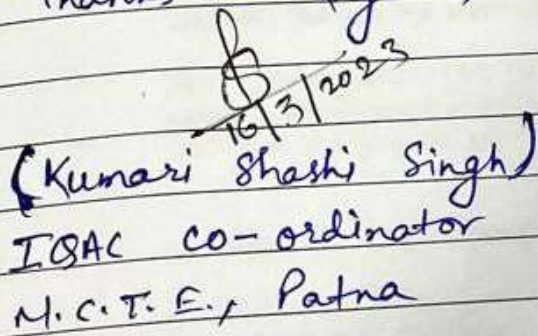 16/3/2023
(Kumari Shashi Singh)
IQAC co-ordinator
M.C.T.E., Patna